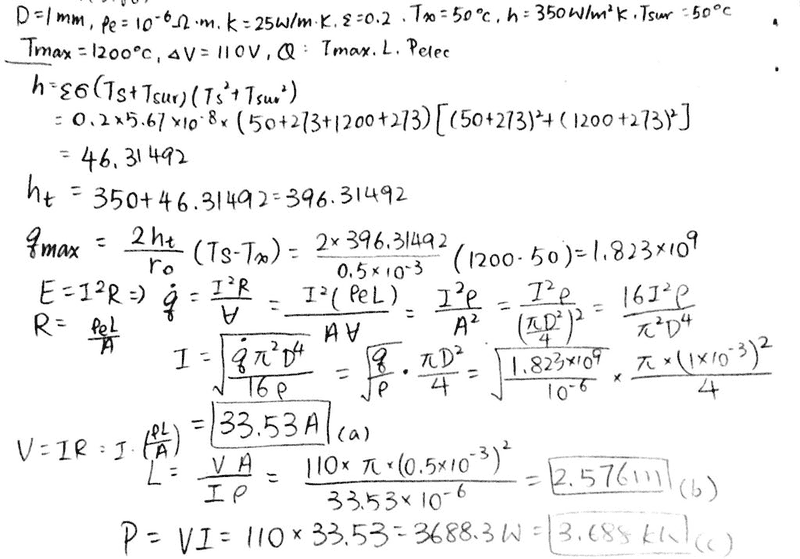 D=1mm, ρe=10⁻⁶Ω·m. k=25W/m·K. ε=0.2. T∞=50°C, h=350W/m²K. Tsur=50°C
Tmax=1200°C, ΔV=110V, Q: Imax. L. Pelec
h=εσ(Ts+Tsur)(Ts²+Tsur²)
= 0.2×5.67×10⁻⁸×(50+273+1200+273)[(50+273)²+(1200+273)²]
= 46.31492
ht = 350+46.31492=396.31492
q̇max = 2ht/ro (Ts-T∞) = 2×396.31492/0.5×10⁻³ (1200-50)=1.823×10⁹
E=I²R=> q̇ = I²R/∀ = I²(ρeL)/A∀ = I²ρ/A² = I²ρ/(πD²/4)² = 16I²ρ/π²D⁴
R= ρeL/A
I = √(q̇π²D⁴/16ρ) = √(q̇/ρ) · πD²/4 = √(1.823×10⁹/10⁻⁶) × π×(1×10⁻³)²/4
= 33.53A (a)
V=IR=I·(ρL/A)
L= VA/Iρ = 110×π×(0.5×10⁻³)²/33.53×10⁻⁶ = 2.576m (b)
P = VI = 110×33.53=3688.3W=3.688kW (c)